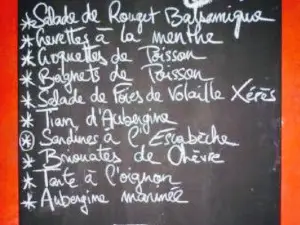 * Salade de Rouget Balsamique
* Crevettes à la menthe
* Croquettes de Poisson
* Beignets de Poisson
* Salade de Foies de Volaille Xérès
* Tian d'Aubergine
* Sardines à l'Escabèche
* Briouates de Chèvre
* Tarte à l'oignon
* Aubergine marinée